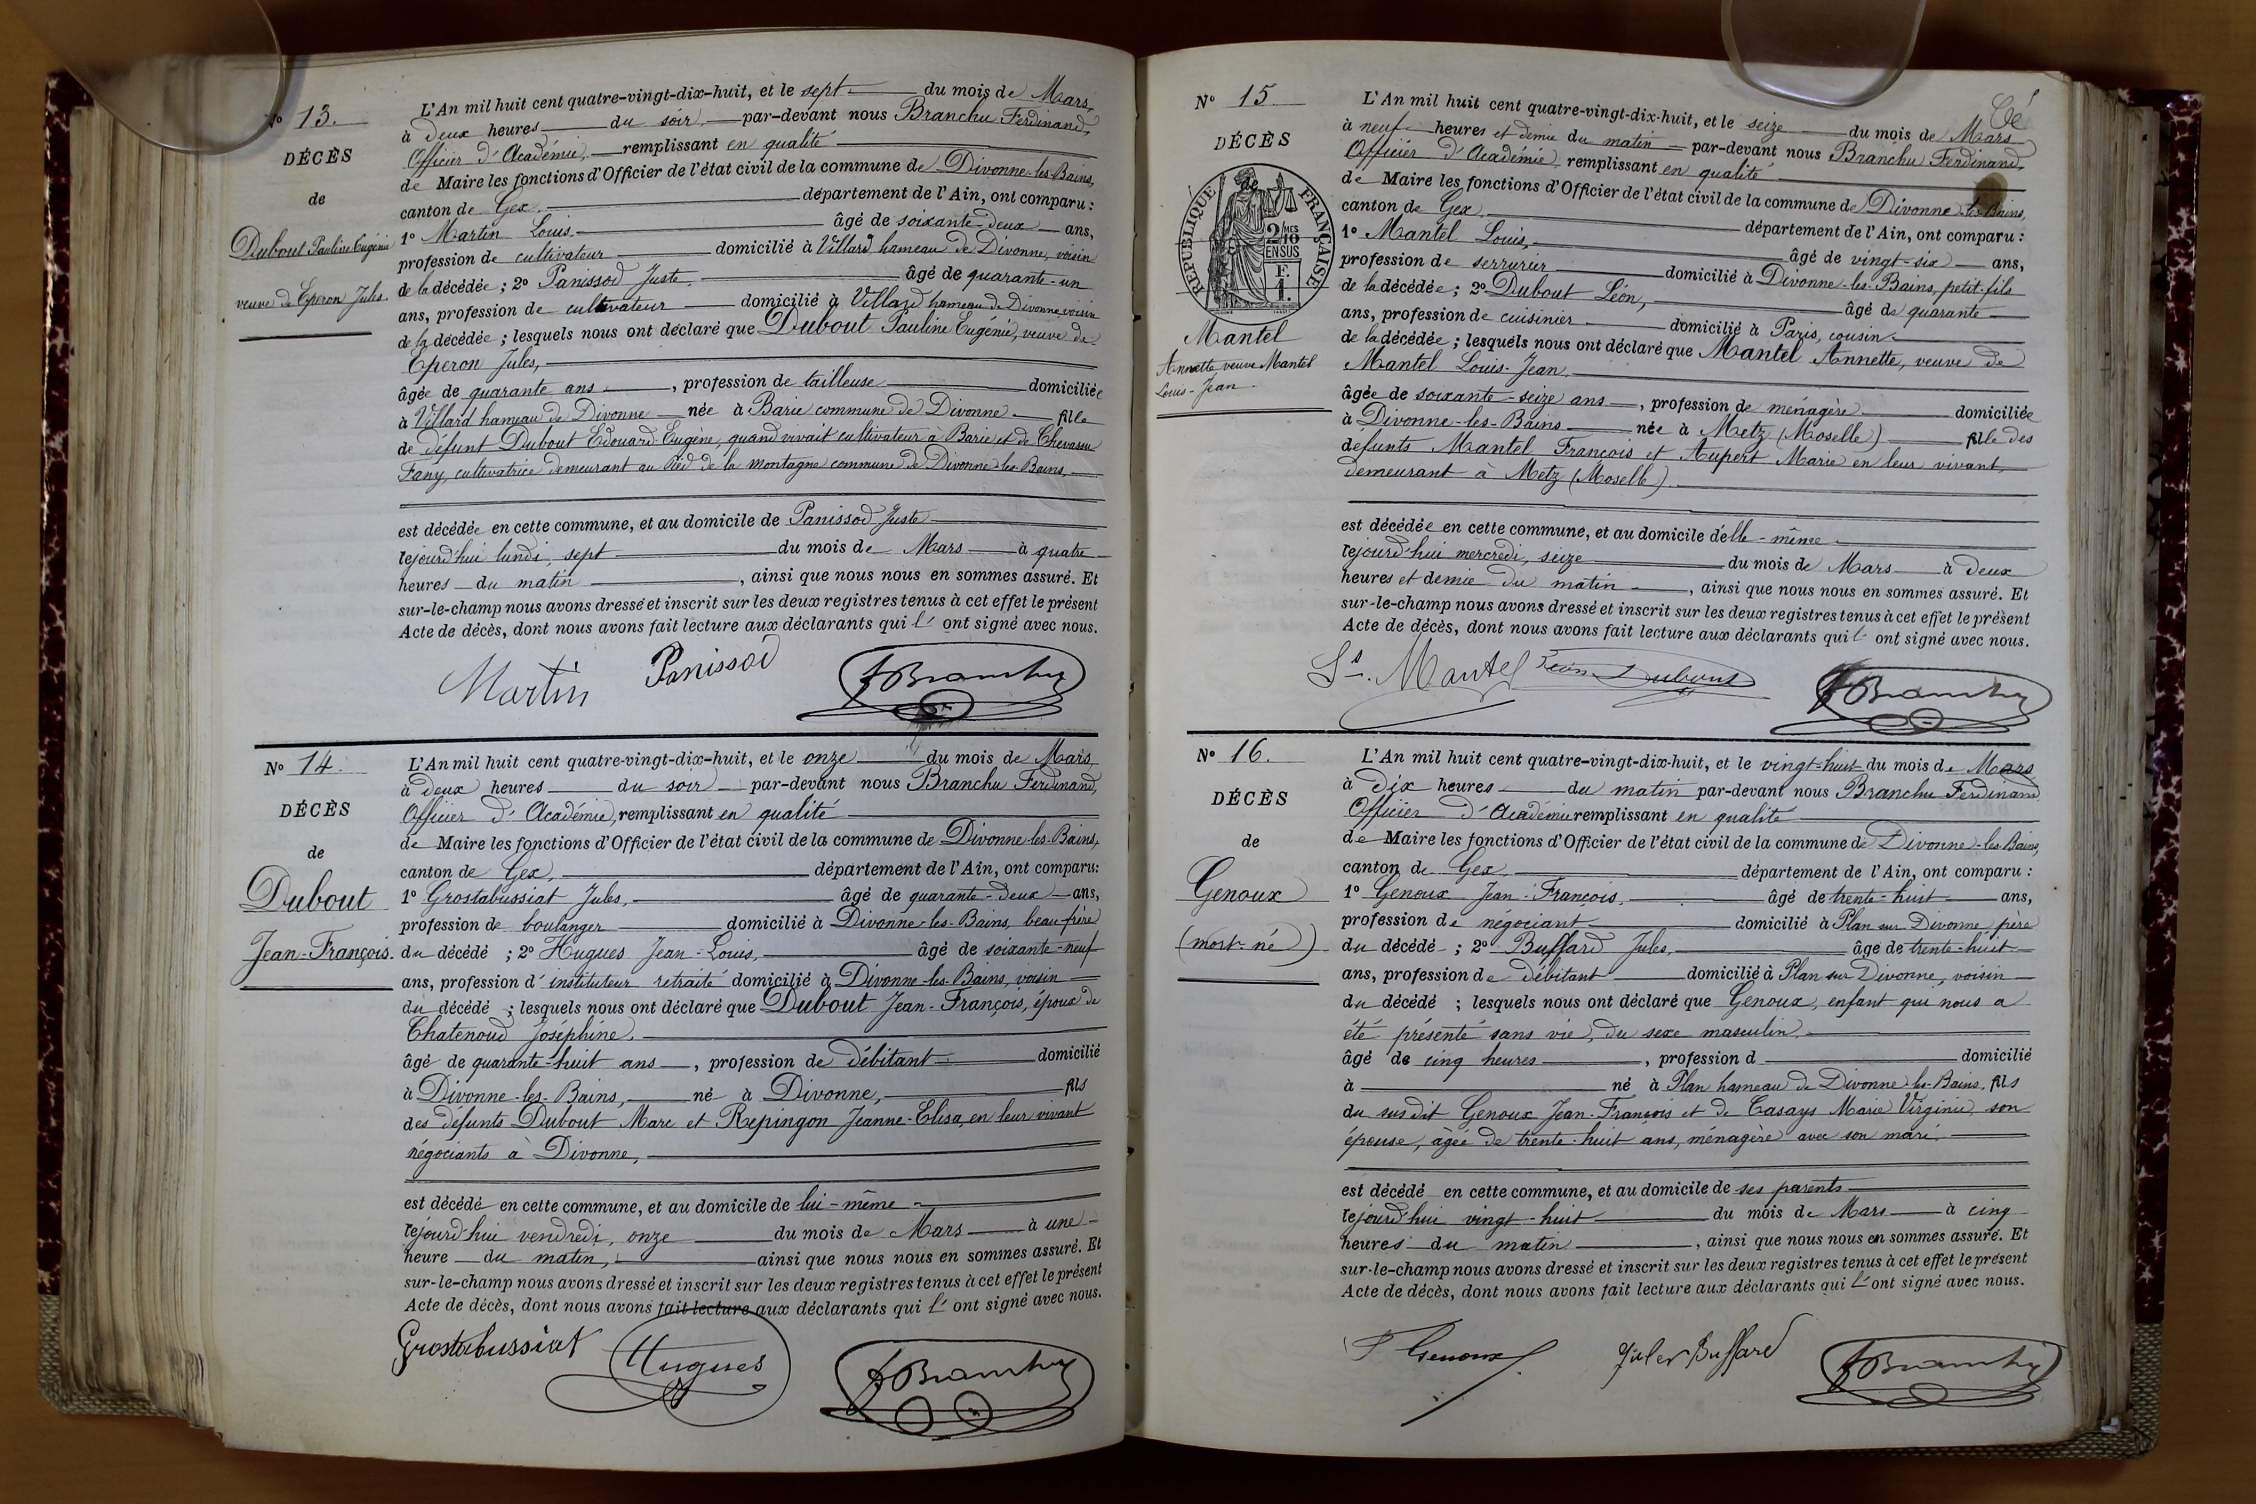 N° 13.
DÉCÈS
de
Dubout Pauline Eugénie
veuve de Eperon Jules.
L'An mil huit cent quatre-vingt-dix-huit, et le sept du mois de Mars,
à deux heures du soir par-devant nous Branchu Ferdinand,
Officier d'Académie, remplissant en qualité
de Maire les fonctions d'Officier de l'état civil de la commune de Divonne-les-Bains,
canton de Gex, département de l'Ain, ont comparu :
1° Martin Louis âgé de soixante-deux ans,
profession de cultivateur domicilié à Villard hameau de Divonne, voisin
de la décédée ; 2° Panissod Juste, âgé de quarante-un
ans, profession de cultivateur domicilié à Villard hameau de Divonne voisin
de la décédée ; lesquels nous ont déclaré que Dubout Pauline Eugénie, veuve de
Eperon Jules,
âgée de quarante ans, profession de tailleuse domiciliée
à Villard hameau de Divonne née à Barie commune de Divonne fille
de défunt Dubout Edouard-Eugène, quand vivait cultivateur à Barie et de Chevassu
Fany, cultivatrice demeurant au Pied de la montagne commune de Divonne-les-Bains,
est décédée en cette commune, et au domicile de Panissod Juste
cejourd'hui lundi, sept du mois de Mars à quatre
heures du matin, ainsi que nous nous en sommes assuré. Et
sur-le-champ nous avons dressé et inscrit sur les deux registres tenus à cet effet le présent
Acte de décès, dont nous avons fait lecture aux déclarants qui l' ont signé avec nous.
Martin Panissod FBranchu
N° 14.
DÉCÈS
de
Dubout
Jean-François.
L'An mil huit cent quatre-vingt-dix-huit, et le onze du mois de Mars,
à deux heures du soir par-devant nous Branchu Ferdinand,
Officier d'Académie, remplissant en qualité
de Maire les fonctions d'Officier de l'état civil de la commune de Divonne-les-Bains,
canton de Gex, département de l'Ain, ont comparu:
1° Grostabussiat Jules, âgé de quarante-deux ans,
profession de boulanger domicilié à Divonne-les-Bains, beau-frère
du décédé ; 2° Hugues Jean-Louis, âgé de soixante-neuf
ans, profession d'instituteur retraité domicilié à Divonne-les-Bains, voisin
du décédé ; lesquels nous ont déclaré que Dubout Jean-François, époux de
Chatenoud Joséphine,
âgé de quarante-huit ans, profession de débitant domicilié
à Divonne-les-Bains, né à Divonne, fils
des défunts Dubout Marc et Repingon Jeanne-Elisa, en leur vivant
négociants à Divonne,
est décédé en cette commune, et au domicile de lui-même
cejourd'hui vendredi, onze du mois de Mars à une
heure du matin, ainsi que nous nous en sommes assuré. Et
sur-le-champ nous avons dressé et inscrit sur les deux registres tenus à cet effet le présent
Acte de décès, dont nous avons fait lecture aux déclarants qui l' ont signé avec nous.
Grostabussiat Hugues FBranchu
N° 15
DÉCÈS
de
RÉPUBLIQUE FRANÇAISE
2/10 MES
EN SUS
F.
1.
Mantel
Annette veuve Mantel
Louis-Jean
L'An mil huit cent quatre-vingt-dix-huit, et le seize du mois de Mars
à neuf heures et demie du matin par-devant nous Branchu Ferdinand,
Officier d'Académie remplissant en qualité
de Maire les fonctions d'Officier de l'état civil de la commune de Divonne-les-Bains,
canton de Gex département de l'Ain, ont comparu :
1° Mantel Louis, âgé de vingt-six ans,
profession de serrurier domicilié à Divonne-les-Bains, petit-fils
de la décédée ; 2° Dubout Léon, âgé de quarante
ans, profession de cuisinier domicilié à Paris, cousin
de la décédée ; lesquels nous ont déclaré que Mantel Annette, veuve de
Mantel Louis-Jean,
âgée de soixante-seize ans, profession de ménagère domiciliée
à Divonne-les-Bains née à Metz (Moselle) fille des
defunts Mantel François et Aupert Marie en leur vivant
demeurant à Metz (Moselle)
est décédée en cette commune, et au domicile d'elle-même
cejourd'hui mercredi, seize du mois de Mars à deux
heures et demie du matin, ainsi que nous nous en sommes assuré. Et
sur-le-champ nous avons dressé et inscrit sur les deux registres tenus à cet effet le présent
Acte de décès, dont nous avons fait lecture aux déclarants qui l' ont signé avec nous.
Ls. Mantel Léon Dubout FBranchu
N° 16.
DÉCÈS
de
Genoux
(mort-né)
L'An mil huit cent quatre-vingt-dix-huit, et le vingt-huit du mois de Mars
à dix heures du matin par-devant nous Branchu Ferdinand
Officier d'Académie remplissant en qualité
de Maire les fonctions d'Officier de l'état civil de la commune de Divonne-les-Bains,
canton de Gex département de l'Ain, ont comparu :
1° Genoux Jean-François, âgé de trente-huit ans,
profession de négociant domicilié à Plan sur Divonne, père
du décédé ; 2° Buffard Jules, âgé de trente-huit
ans, profession de débitant domicilié à Plan sur Divonne, voisin
du décédé ; lesquels nous ont déclaré que Genoux, enfant qui nous a
été présenté sans vie, du sexe masculin,
âgé de cinq heures, profession d domicilié
à né à Plan hameau de Divonne-les-Bains, fils
du susdit Genoux Jean-François et de Casays Marie Virginie, son
épouse, âgée de trente-huit ans, ménagère avec son mari.
est décédé en cette commune, et au domicile de ses parents
cejourd'hui vingt-huit du mois de Mars à cinq
heures du matin, ainsi que nous nous en sommes assuré. Et
sur-le-champ nous avons dressé et inscrit sur les deux registres tenus à cet effet le présent
Acte de décès, dont nous avons fait lecture aux déclarants qui l' ont signé avec nous.
F Genoux Jules Buffard FBranchu